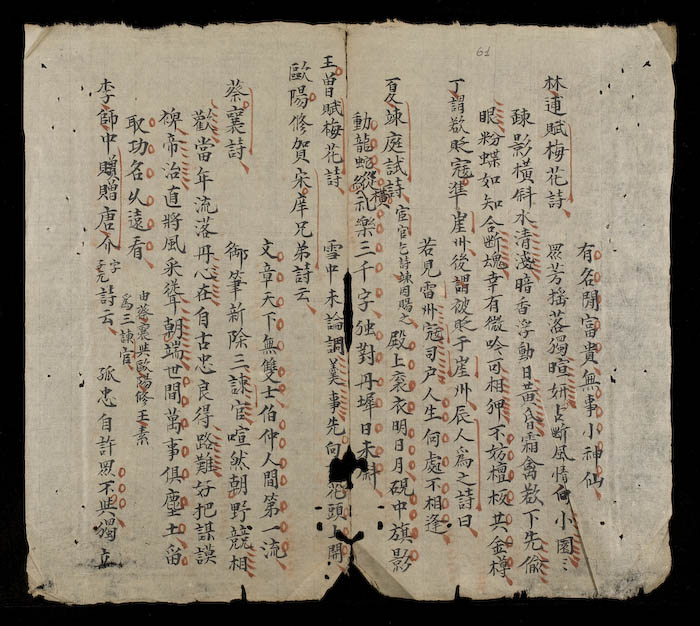 61
有名閒富貴無事小神仙
林逋賦梅花詩 眾芳搖落獨暄妍占斷風情向小園〻
疎影橫斜水清淺暗香浮動日黃昏霜禽欲下先偷
眼粉蝶如知合斷魂幸有微吟可相狎不妨檀板共金樽
丁謂欲貶寇準崖州後謂被貶于崖州辰人為之詩曰
若見雷州寇司戶人生何處不相逢
夏竦庭試詩 宦官乞詩竦因賜之 殿上衮衣明日月硯中旗影
動龍蛇縱橫礼樂三千字独對丹墀日未斜
王曾賦梅花詩 雪中未論調羹事先向 花頭上開
歐陽修賀宋庠兄弟詩云
文章天下無雙士伯仲人間第一流
蔡襄詩 御筆新除三諫官喧然朝野競相
歡當年流落丹心在自古忠良得路難好把謀謨
裨帝治直將風采聳朝端世間萬事俱塵土留
取功名久遠看 由蔡襄與歐陽修王素為三諫官
李師中贈贈唐介 字 詩云 孤忠自許眾不與獨立